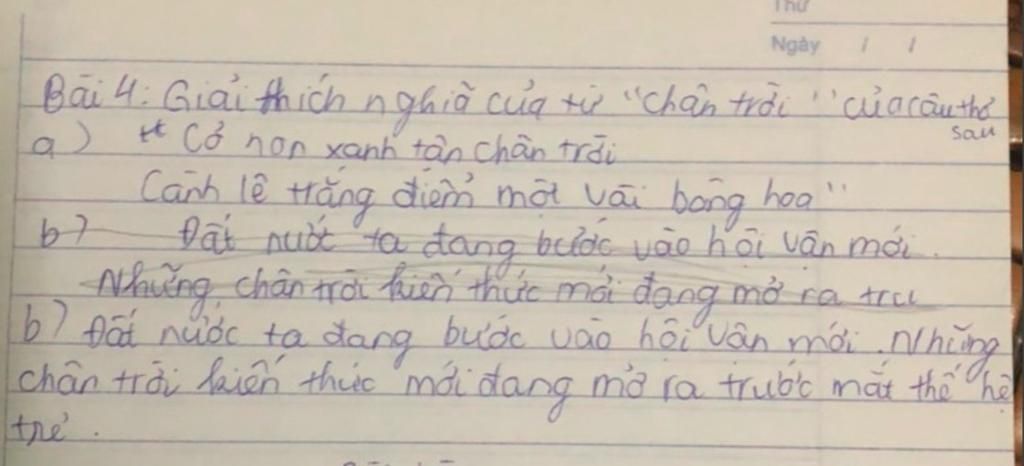 Thứ
Ngày / /
Bài 4: Giải thích nghĩa của từ "chân trời" của câu thơ
sau
a) "Cỏ non xanh tận chân trời
Cành lê trắng điểm một vài bông hoa"
b) Đất nước ta đang bước vào hội vận mới.
Những chân trời kiến thức mới đang mở ra trư
b) Đất nước ta đang bước vào hội vận mới. Những
chân trời kiến thức mới đang mở ra trước mắt thế hệ
trẻ.